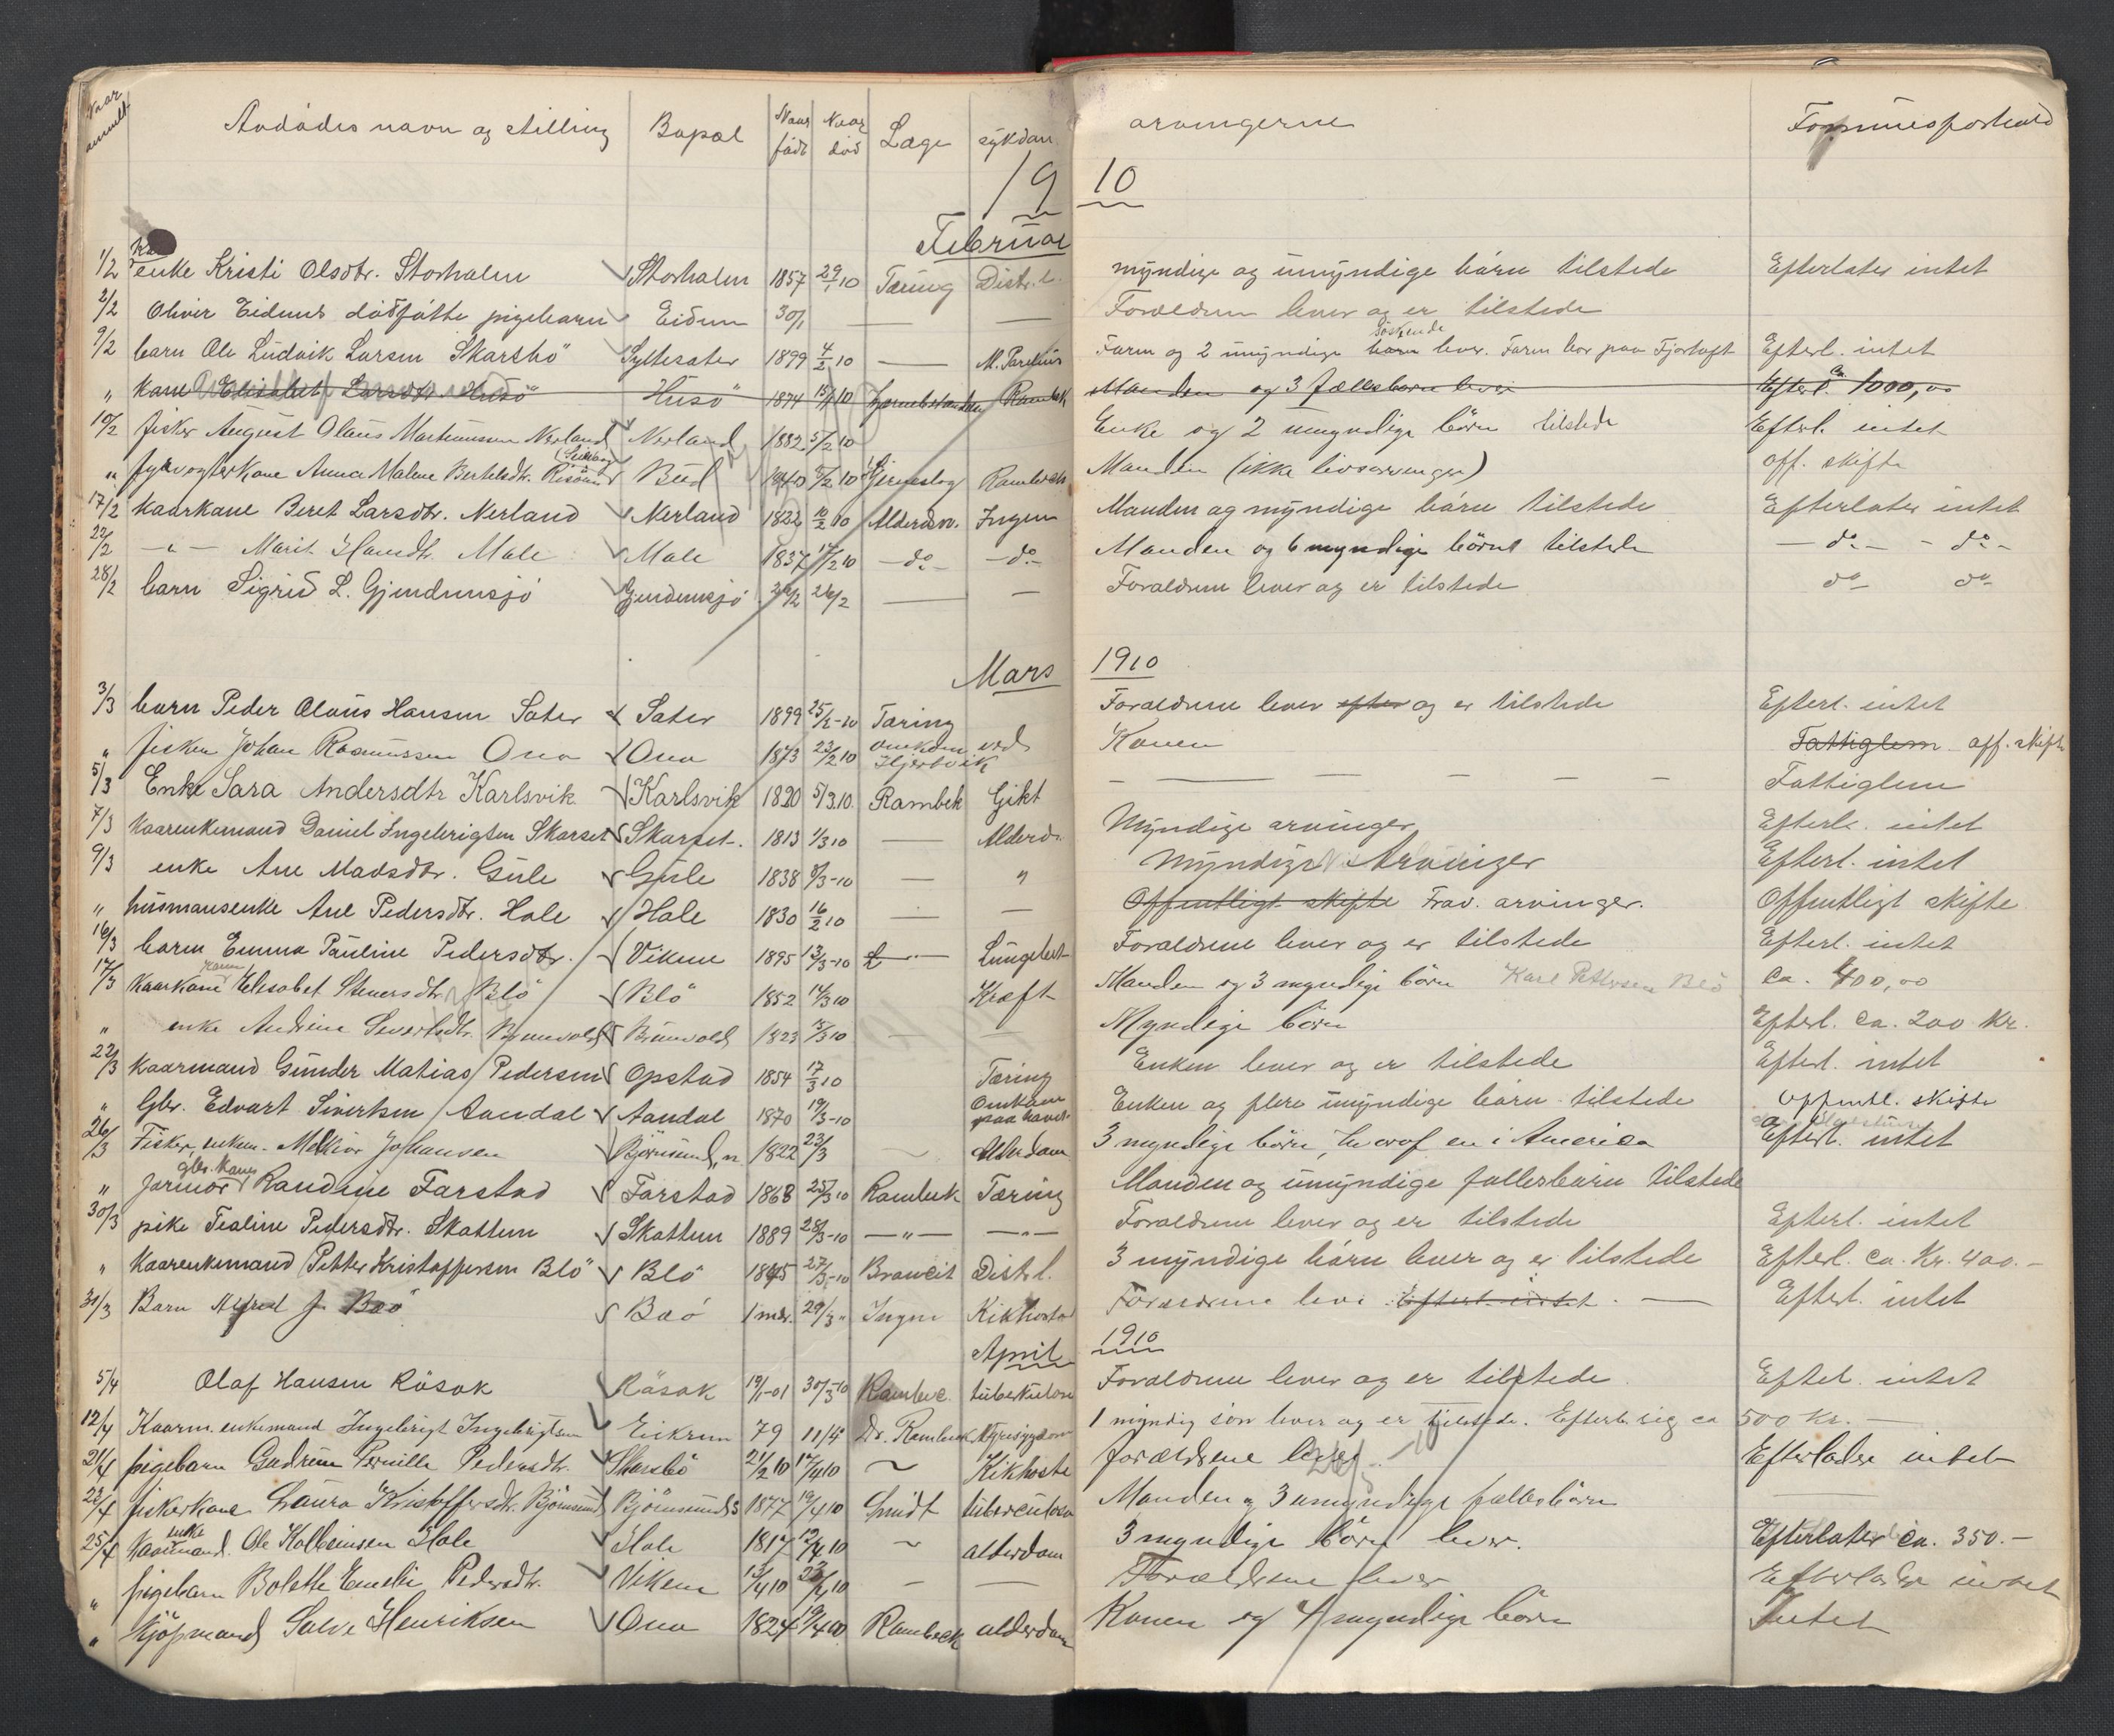 Naar anmeldt Avdødes navn og stilling Bopæl Naar født Naar død Læge sykdom arvingerne Formuesforhold
19 10
Februar
1/2 enke Kristi Olsdtr. Storholm Storholm 1857 29/1 10 Tæring Distr.l. myndige og umyndige børn tilstede Efterlater intet
2/2 Oliver Eidems dødfødte pigebarn Eidem 30/1 — — Forældrene lever og er tilstede
9/2 barn Ole Ludvik Larsen Skarsbö Syltesæter 1899 4/2 10 — Faren og 2 umyndige børn søskende lever. Faren bor paa Fjørtoft Efterl. intet
" kone Elisabet Larsdtr. Husö Husö 1874 15/1 10 Rambek Manden og 3 fællesbarn lever Efterl. ca. 1000,00
10/2 fisker August Olaus Martinussen Nerland Nerland 1882 5/2 10 Enke og 2 umyndige börn tilstede Efterl. intet
" fyrvogterkone Anna Malene Bertelsdtr. Bud 10 Hjerneslag Rambeck Manden (ikke livsarvinger) off. skifte
17/2 kaarkone Beret Larsdtr. Nerland Nerland 1822 10/2 10 Alderdom. Ingen Manden og myndige børn tilstede Efterlater intet
22/2 —"— Marit Hansdtr. Male Male 1837 17/2 10 — do — — do — Manden og 6 myndige börn tilstede — do — — do —
28/2 barn Sigrid L. Gjendemsjø Gjendemsjø 26/2 — — Forældrene lever og er tilstede do do
Mars 1910
3/3 barn Peder Olaus Hansen Sæter Sæter 1899 25/2-10 Tæring Forældrene lever efter og er tilstede Efterl. intet
" fisker Johan Rasmussen Ona Ona 1873 23/2 10 omkom ved Hjertvik Konen Fattiglem off. skifte
5/3 Enke Sara Andersdtr Karlsvik Karlsvik 1820 5/3.10. Rambek Gikt — — — — — Fattiglem
7/3 Kaarenkemand Daniel Ingebrigtsen Skarset Skarset. 1813 1/3 10 — Alderd. Myndige arvinger Efterl. intet
9/3 enke Ane Madsdtr. Gule Gule 1838 6/3-10 — " Myndige Arvinger Efterl. intet
" husmansenke Ane Pedersdtr. Hole Hole 1830 16/2 10 — — Offentligt skifte Frav. arvinger. Offentligt skifte
16/3 barn Emma Pauline Pedersdtr. Viken 1895 13/3-10 — Lungebet. Forældrene lever og er tilstede Efterl. intet
17/3 Kaarkone Elisabet Steversdtr. Blö Blö 1852 14/3 10 Kræft Manden og 3 myndige börn Karl Pettersen Blö ca. 400,00
" enke Andrine Sivertsdtr. Brunvold Brunvold 1823 15/3 10 — — Myndige börn Efterl. ca. 200 Kr.
22/3 Kaarmand Gunder Matias Pedersen Opstad 1854 17/3 10 Tæring Enken lever og er tilstede Efterl. intet
" Gbr. Edvart Sivertsen Aandal Aandal 1870 19/3-10 Omkom paa havet Enken og flere umyndige børn tilstede Offentl. skifte
26/3 Fisker, enkem. Melkior Johansen Björnsund, n. 1822 23/3 ~ Alderdom 3 myndige börn, hvoraf en i America Efterl. intet
" gbr. kone Jarmor Randine Farstad Farstad 1868 25/3 10 Rambek Tæring Manden og umyndige fællesbørn tilstede
30/3 pike Tealine Pedersdtr. Skottem Skottem 1889 28/3-10 —"— —"— Forældrene lever og er tilstede Efterl. intet
" Kaarenkemand Petter Kristoffersen Blö Blö 1845 27/3-10 Distr.l. 3 myndige børn lever og er tilstede Efterl. ca. Kr. 400.-
31/3 Barn Alfred J. Boö Boö 1 mdr. 29/3 " Ingen Kikhoste Forældrene leve Efterl. intet — Efterl. intet
April 1910
5/4 Olaf Hansen Rösok Rösok 19/1-01 30/3-10 Rambec. tuberkulose Forældrene lever og er tilstede. Efterl. intet
12/4 Kaarm. enkemand Ingebrigt Ingebrigtsen Eikrem 79 11/4 Dr. Rambeck Nyresygdom 1 myndig søn lever og er tilstede. Efterl. sig ca 500 Kr.
21/4 pigebarn Gudrun Pernille Pedersdtr. Skarsbö 21/2 10 17/4 10 ~ Kikhoste forældrene lever Efterlader intet
23/4 fiskerkone Laura Kristoffersdtr. Björnsund Björnsund s 1877 19/4 10 Smidt tuberculose Manden og 3 umyndige fællesbörn —
25/4 Kaarenkemand. Ole Kolbeinsen Hole Hole 1817 19/4 10 ~ alderdom 3 myndige börn lever. Efterlater ca. 350.-
" pigebarn Bolette Emelie Pedersdtr. Viken 13/4 10 23/4 10 — — Forældrene lever Efterlader intet
" Kjöpmand Salve Henriksen Ona 1824 19/4 10 Rambeck alderdom Konen og 4 myndige börn Intet